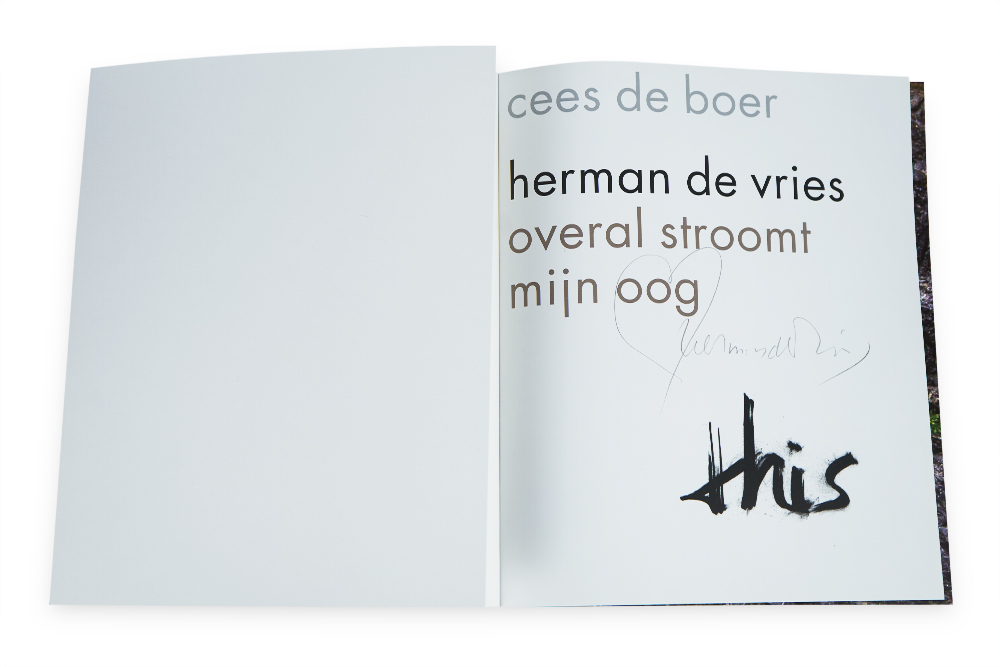 cees de boer
herman de vries
overal stroomt
mijn oog
herman de vries
this